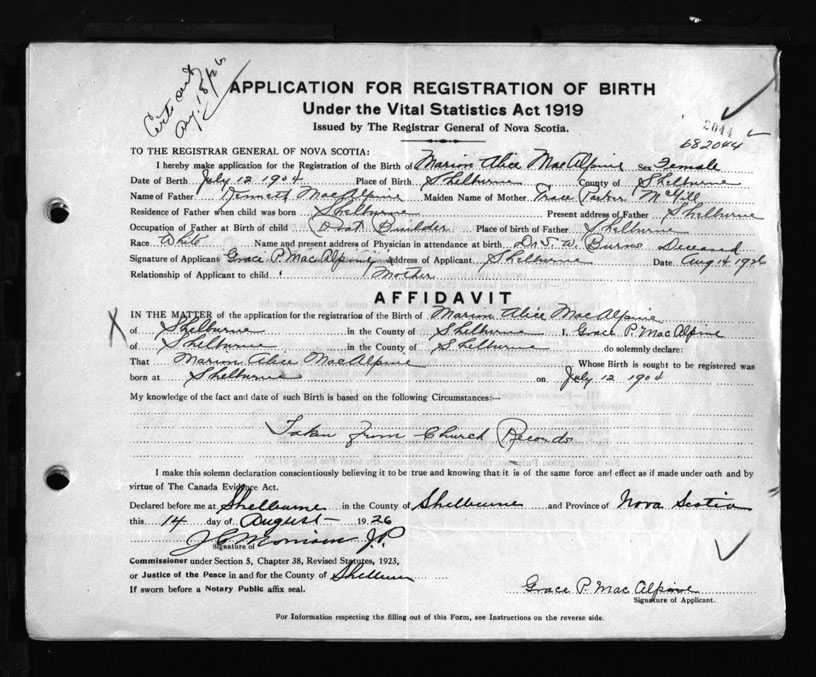 Cert out
Aug. 18/26
APPLICATION FOR REGISTRATION OF BIRTH
Under the Vital Statistics Act 1919
Issued by The Registrar General of Nova Scotia.
2044
682044
TO THE REGISTRAR GENERAL OF NOVA SCOTIA:
I hereby make application for the Registration of the Birth of Marion Alice MacAlpine Sex Female
Date of Birth July 12 1904 Place of Birth Shelburne County of Shelburne
Name of Father Kenneth MacAlpine Maiden Name of Mother Grace Parker McGill
Residence of Father when child was born Shelburne Present address of Father Shelburne
Occupation of Father at Birth of child Boat Builder Place of birth of Father Shelburne
Race White Name and present address of Physician in attendance at birth Dr S. W. Burns Deceased
Signature of Applicant Grace P. MacAlpine Address of Applicant Shelburne Date Aug 14 1926
Relationship of Applicant to child Mother
AFFIDAVIT
IN THE MATTER of the application for the registration of the Birth of Marion Alice MacAlpine
X of Shelburne in the County of Shelburne I, Grace P. MacAlpine
of Shelburne in the County of Shelburne do solemnly declare:
That Marion Alice MacAlpine Whose Birth is sought to be registered was
born at Shelburne on July 12 1904
My knowledge of the fact and date of such Birth is based on the following Circumstances:—
Taken from Church Records
I make this solemn declaration conscientiously believing it to be true and knowing that it is of the same force and effect as if made under oath and by
virtue of The Canada Evidence Act.
Declared before me at Shelburne in the County of Shelburne and Province of Nova Scotia
this 14 day of August 1926
J.P.
Signature of
Commissioner under Section 5, Chapter 38, Revised Statutes, 1923,
or Justice of the Peace in and for the County of Shelburne
If sworn before a Notary Public affix seal.
Grace P. MacAlpine
Signature of Applicant.
For Information respecting the filling out of this Form, see Instructions on the reverse side.